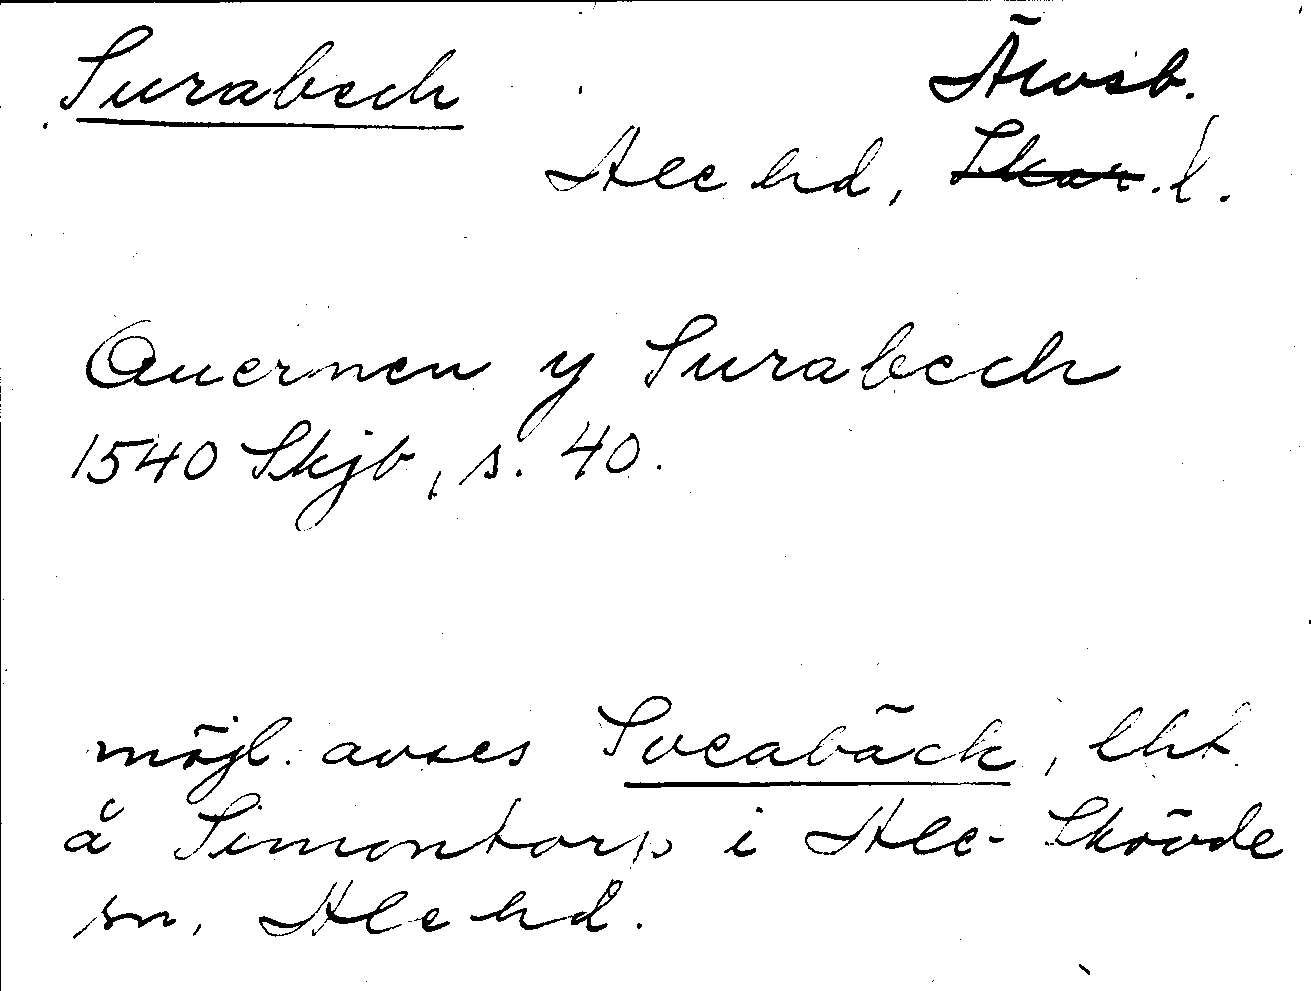 Surabech
Älvsb.
Ale hd, Skar. l.
Quernen y Surabech
1540 Skjb, s. 40.
möjl. avses Sveabäck, lht
å Simontorp i Ale-Skövde
sn, Ale hd.